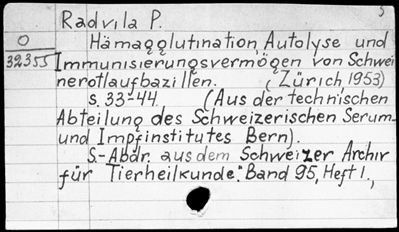 Radvila P.
O
32355
Hämagglutination, Autolyse und
Immunisierungsvermögen von Schwei
nerotlaufbazillen. (Zürich 1953)
S. 33-44. (Aus der technischen
Abteilung des Schweizerischen Serum-
und Impfinstitutes Bern).
S.-Abdr. aus dem Schweizer Archiv
für Tierheilkunde: Band 95, Heft 1.,